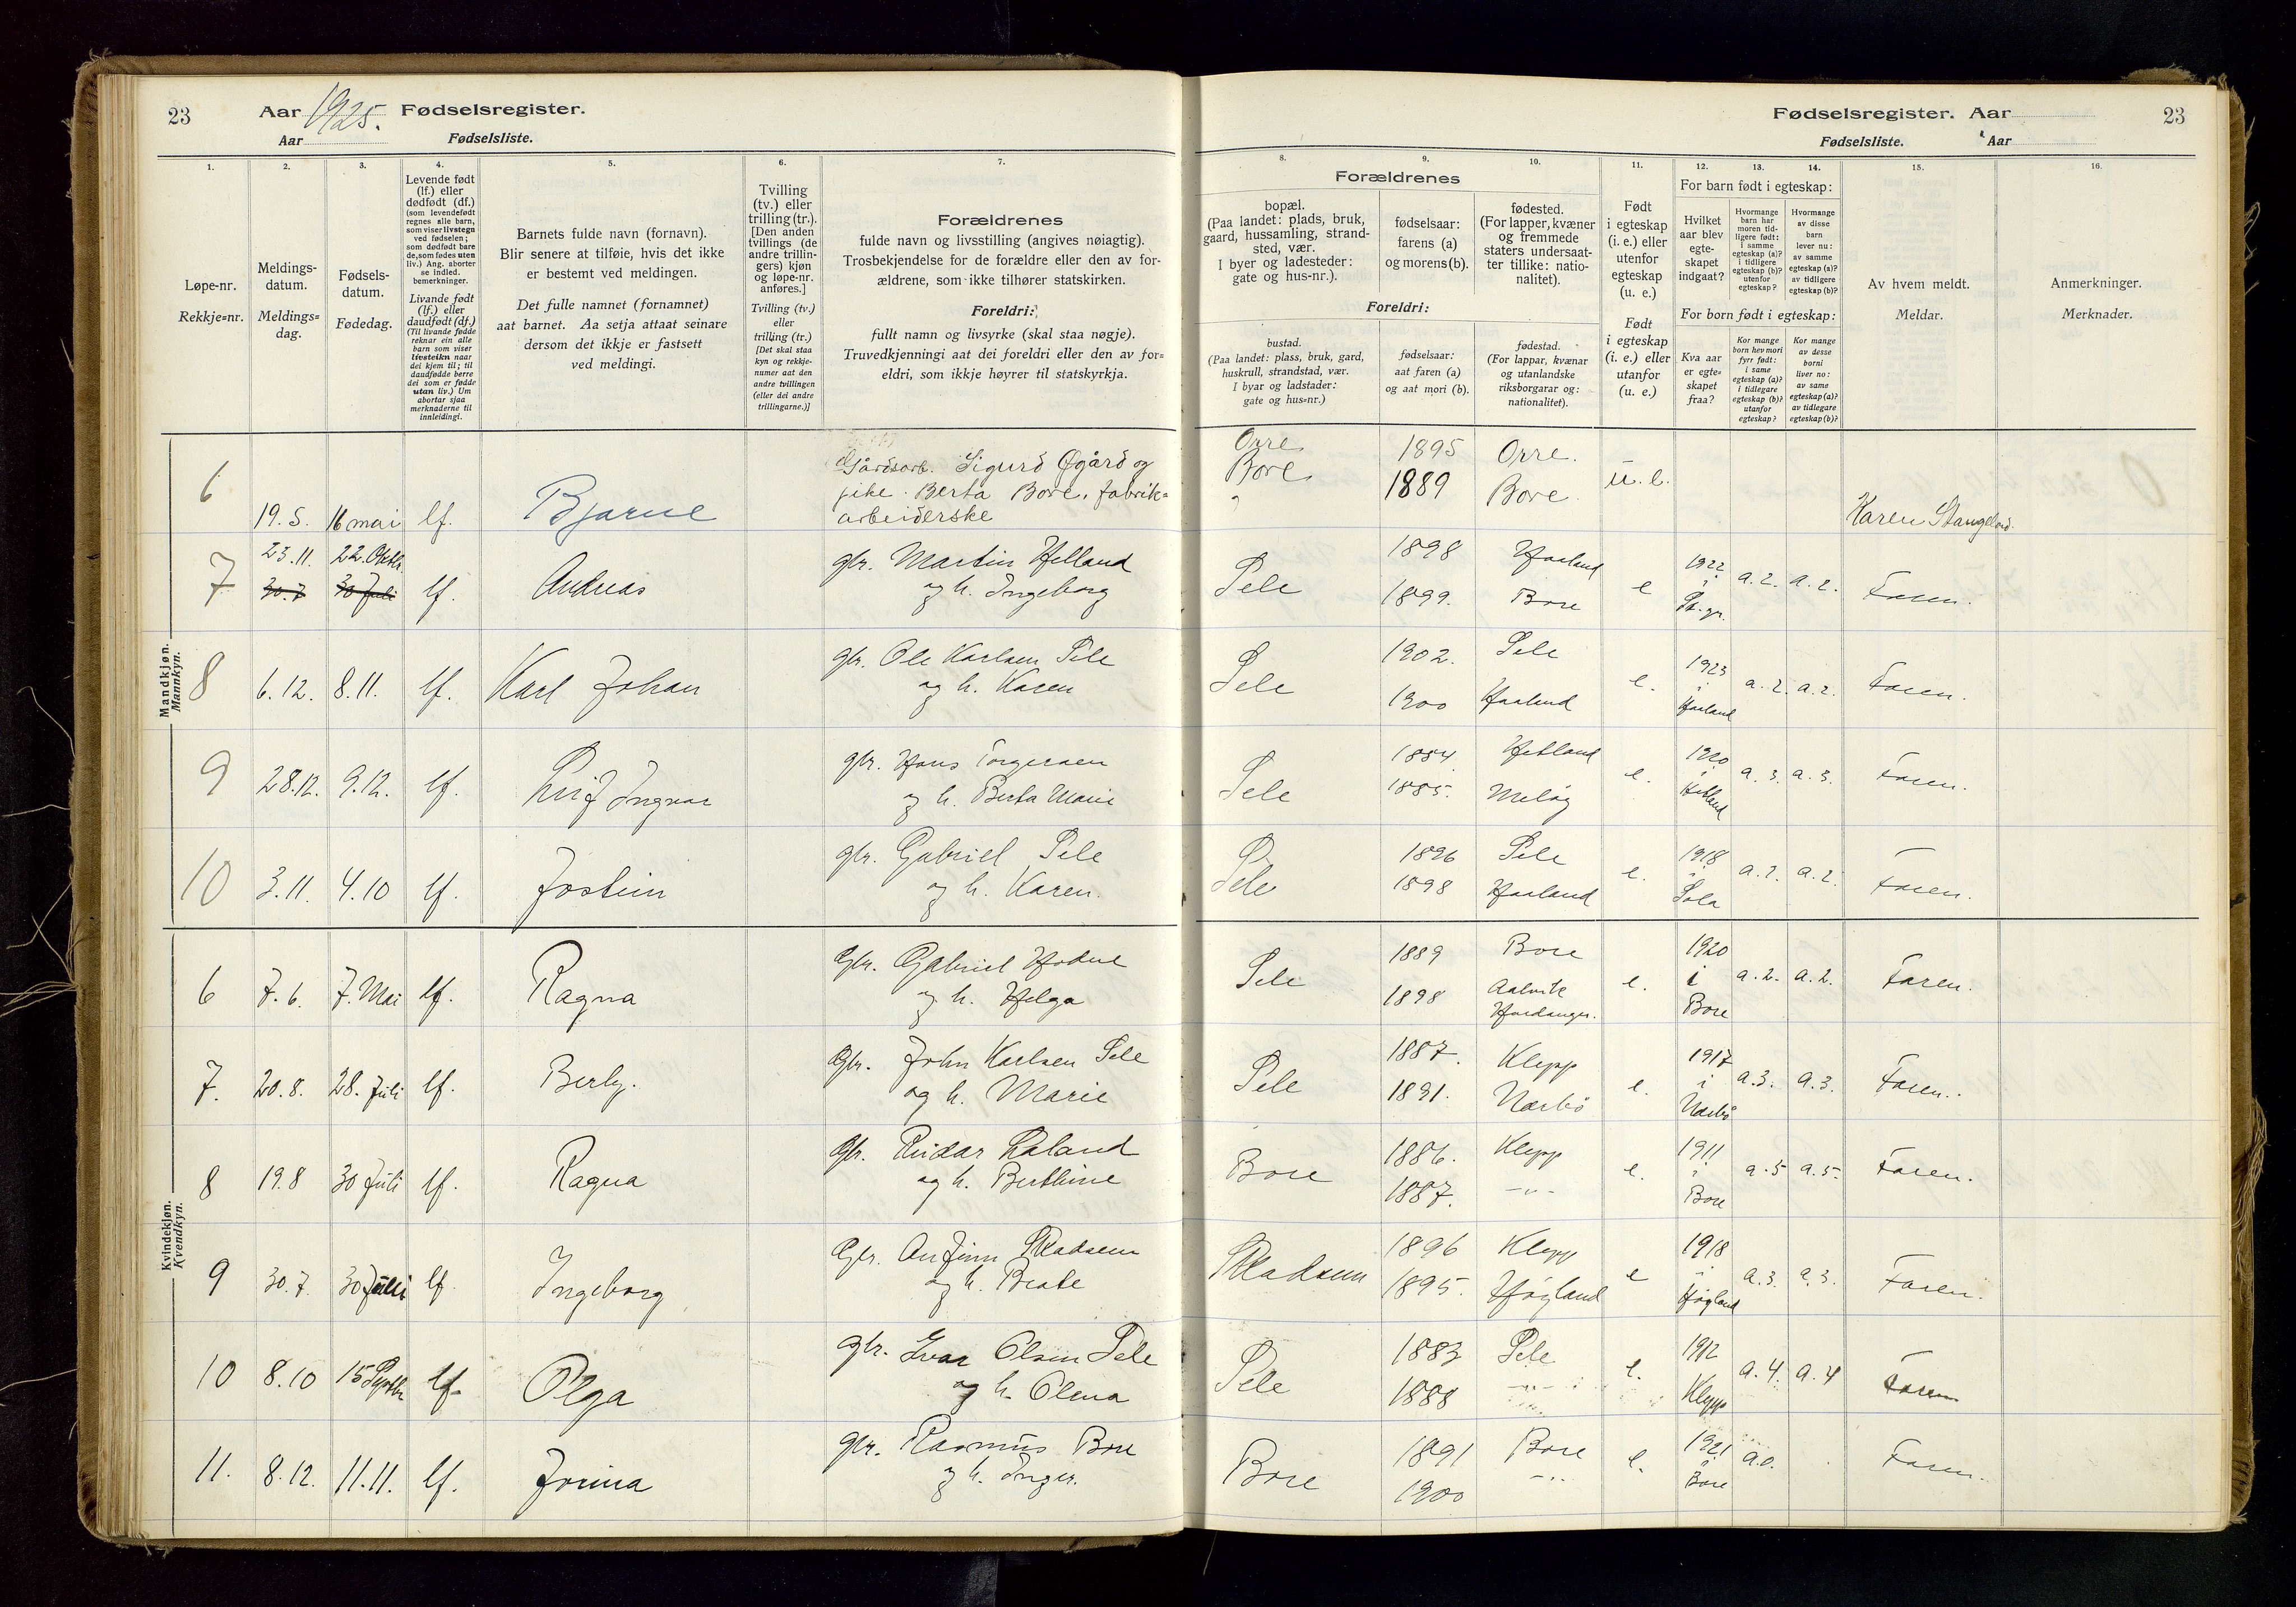 23 Aar 1925. Fødselsregister.
Aar Fødselsliste.
Fødselsregister. Aar 23
Fødselsliste. Aar
1. 2. 3. 4. 5. 6. 7. 8. 9. 10. 11. 12. 13. 14. 15. 16.
Løpe-nr.
Rekkje=nr.
Meldings-
datum.
Meldings=
dag.
Fødsels-
datum.
Fødedag.
Levende født
(lf.) eller
dødfødt (df.)
(som levendefødt
regnes alle barn,
som viser livstegn
ved fødselen;
som dødfødt bare
de, som fødes uten
liv.) Ang. aborter
se indled.
bemerkninger.
Livande født
(lf.) eller
daudfødt (df.)
(Til livande fødde
reknar ein alle
barn som viser
livsteikn naar
dei kjem til; til
daudfødde berre
dei som er fødde
utan liv.) Um
abortar sjaa
merknaderne til
innleidingi.
Barnets fulde navn (fornavn).
Blir senere at tilføie, hvis det ikke
er bestemt ved meldingen.
Det fulle namnet (fornamnet)
aat barnet. Aa setja attaat seinare
dersom det ikkje er fastsett
ved meldingi.
Tvilling
(tv.) eller
trilling (tr.).
[Den anden
tvillings (de
andre trillin-
gers) kjøn
og løpe-nr.
anføres.]
Tvilling (tv.)
eller
trilling (tr.)
[Det skal staa
kyn og rekkje-
numer aat den
andre tvillingen
(eller dei andre
trillingarne.)]
Forældrenes
fulde navn og livsstilling (angives nøiagtig).
Trosbekjendelse for de forældre eller den av for-
ældrene, som ikke tilhører statskirken.
Foreldri:
fullt namn og livsyrke (skal staa nøgje).
Truvedkjenningi aat dei foreldri eller den av for=
eldri, som ikkje høyrer til statskyrkja.
Forældrenes
bopæl.
(Paa landet: plads, bruk,
gaard, hussamling, strand-
sted, vær.
I byer og ladesteder:
gate og hus-nr.).
fødselsaar:
farens (a)
og morens (b).
fødested.
(For lapper, kvæner
og fremmede
staters undersaat-
ter tillike: natio-
nalitet).
Foreldri:
bustad.
(Paa landet: plass, bruk, gard,
huskrull, strandstad, vær.
I byar og ladstader:
gate og hus=nr.)
fødselsaar:
aat faren (a)
og aat mori (b).
fødestad.
(For lappar, kvænar
og utanlandske
riksborgarar og:
nationalitet).
Født
i egteskap
(i. e.) eller
utenfor
egteskap
(u. e.)
Født
i egteskap
(i. e.) eller
utanfor
(u. e.)
For barn født i egteskap:
Hvilket
aar blev
egte-
skapet
indgaat?
Hvormange
barn har
moren tid-
ligere født:
i samme
egteskap (a)?
i tidligere
egteskap (b)?
utenfor
egteskap?
Hvormange
av disse
barn
lever nu:
av samme
egteskap (a)?
av tidligere
egteskap (b)?
For born født i egteskap:
Kva aar
er egte-
skapet
fraa?
Kor mange
born hev mori
fyrr født:
i same
egteskap (a)?
i tidlegare
egteskap (b)?
utanfor
egteskap?
Kor mange
av desse
borni
liver no:
av same
egteskap (a)?
av tidlegare
egteskap (b)?
Av hvem meldt.
Meldar.
Anmerkninger.
Merknader.
Mandkjøn.
Mannkyn.
6 19.5. 16 mai lf. Bjarne
Gårdsarb. Sigurd Øgård og
pike Berta Bore, fabrik-
arbeiderske
Orre 1895 Orre.
Bore 1889 Bore. u.e. Karen Stangeland.
7 23.11. 22. Oktbr. lf. Andreas
30.7 30 Juli
gbr. Martin Helland
og h. Ingeborg
Sele 1898 Haaland
1899. Bore e 1922 i a.2. a.2. Faren.
8 6.12. 8.11. lf. Karl Johan
gbr. Ole Karlsen Sele
og h. Karen
Sele 1902. Sele
1900 Haaland e. 1923 i Haaland a.2. a.2. Faren.
9 28.12. 9.12. lf. Leif Ingvar
gbr. Hans Torgersen
og h. Berta Marie
Sele 1884 Hetland
1885. e. 1920 i Hetland a.3. a.3. Faren.
10 3.11. 4.10 lf. Jostein
gbr. Gabriel Sele
og h. Karen.
Sele 1896 Sele
1898 Haaland e. 1918 i Sola a.2. a.2. Faren.
Kvindekjøn.
Kvendkyn.
6 7.6. 7. Mai lf. Ragna
Gbr. Gabriel Hodne
og h. Helga
Sele 1889 Bore
1898 Aalvik
Hardanger. e. 1920 i Bore a.2. a.2. Faren.
7. 20.8. 28. Juli lf. Berly.
Gbr. John Karlsen Sele
og h. Marie
Sele 1887. Klepp
1891. Nærbö e. 1917 i Nærbö a.3. a.3. Faren.
8 19.8 30 Juli lf. Ragna
Gbr. Reidar Raland
og h. Berthine
Bore 1886. Klepp
1887. -"- e. 1911 i Bore a.5 a.5. Faren.
9 30.7 30 Juli lf Ingeborg
Gbr. Anfinn Skadsem
og h. Beate
Skadsem 1896 Klepp
1895. Högland e 1918 i Högland a.3. a.3. Faren.
10 8.10 15 Septbr lf. Olga
gbr. Ivar Olsen Sele
og h. Olena
Sele 1883 Sele
1888 -"- e. 1912 Klepp a.4. a.4 Faren
11. 8.12. 11.11. lf. Jorina
gbr. Rasmus Bore
og h. Inger.
Bore 1891 Bore
1900 -"- e. 1921 i Bore a.0. Faren.